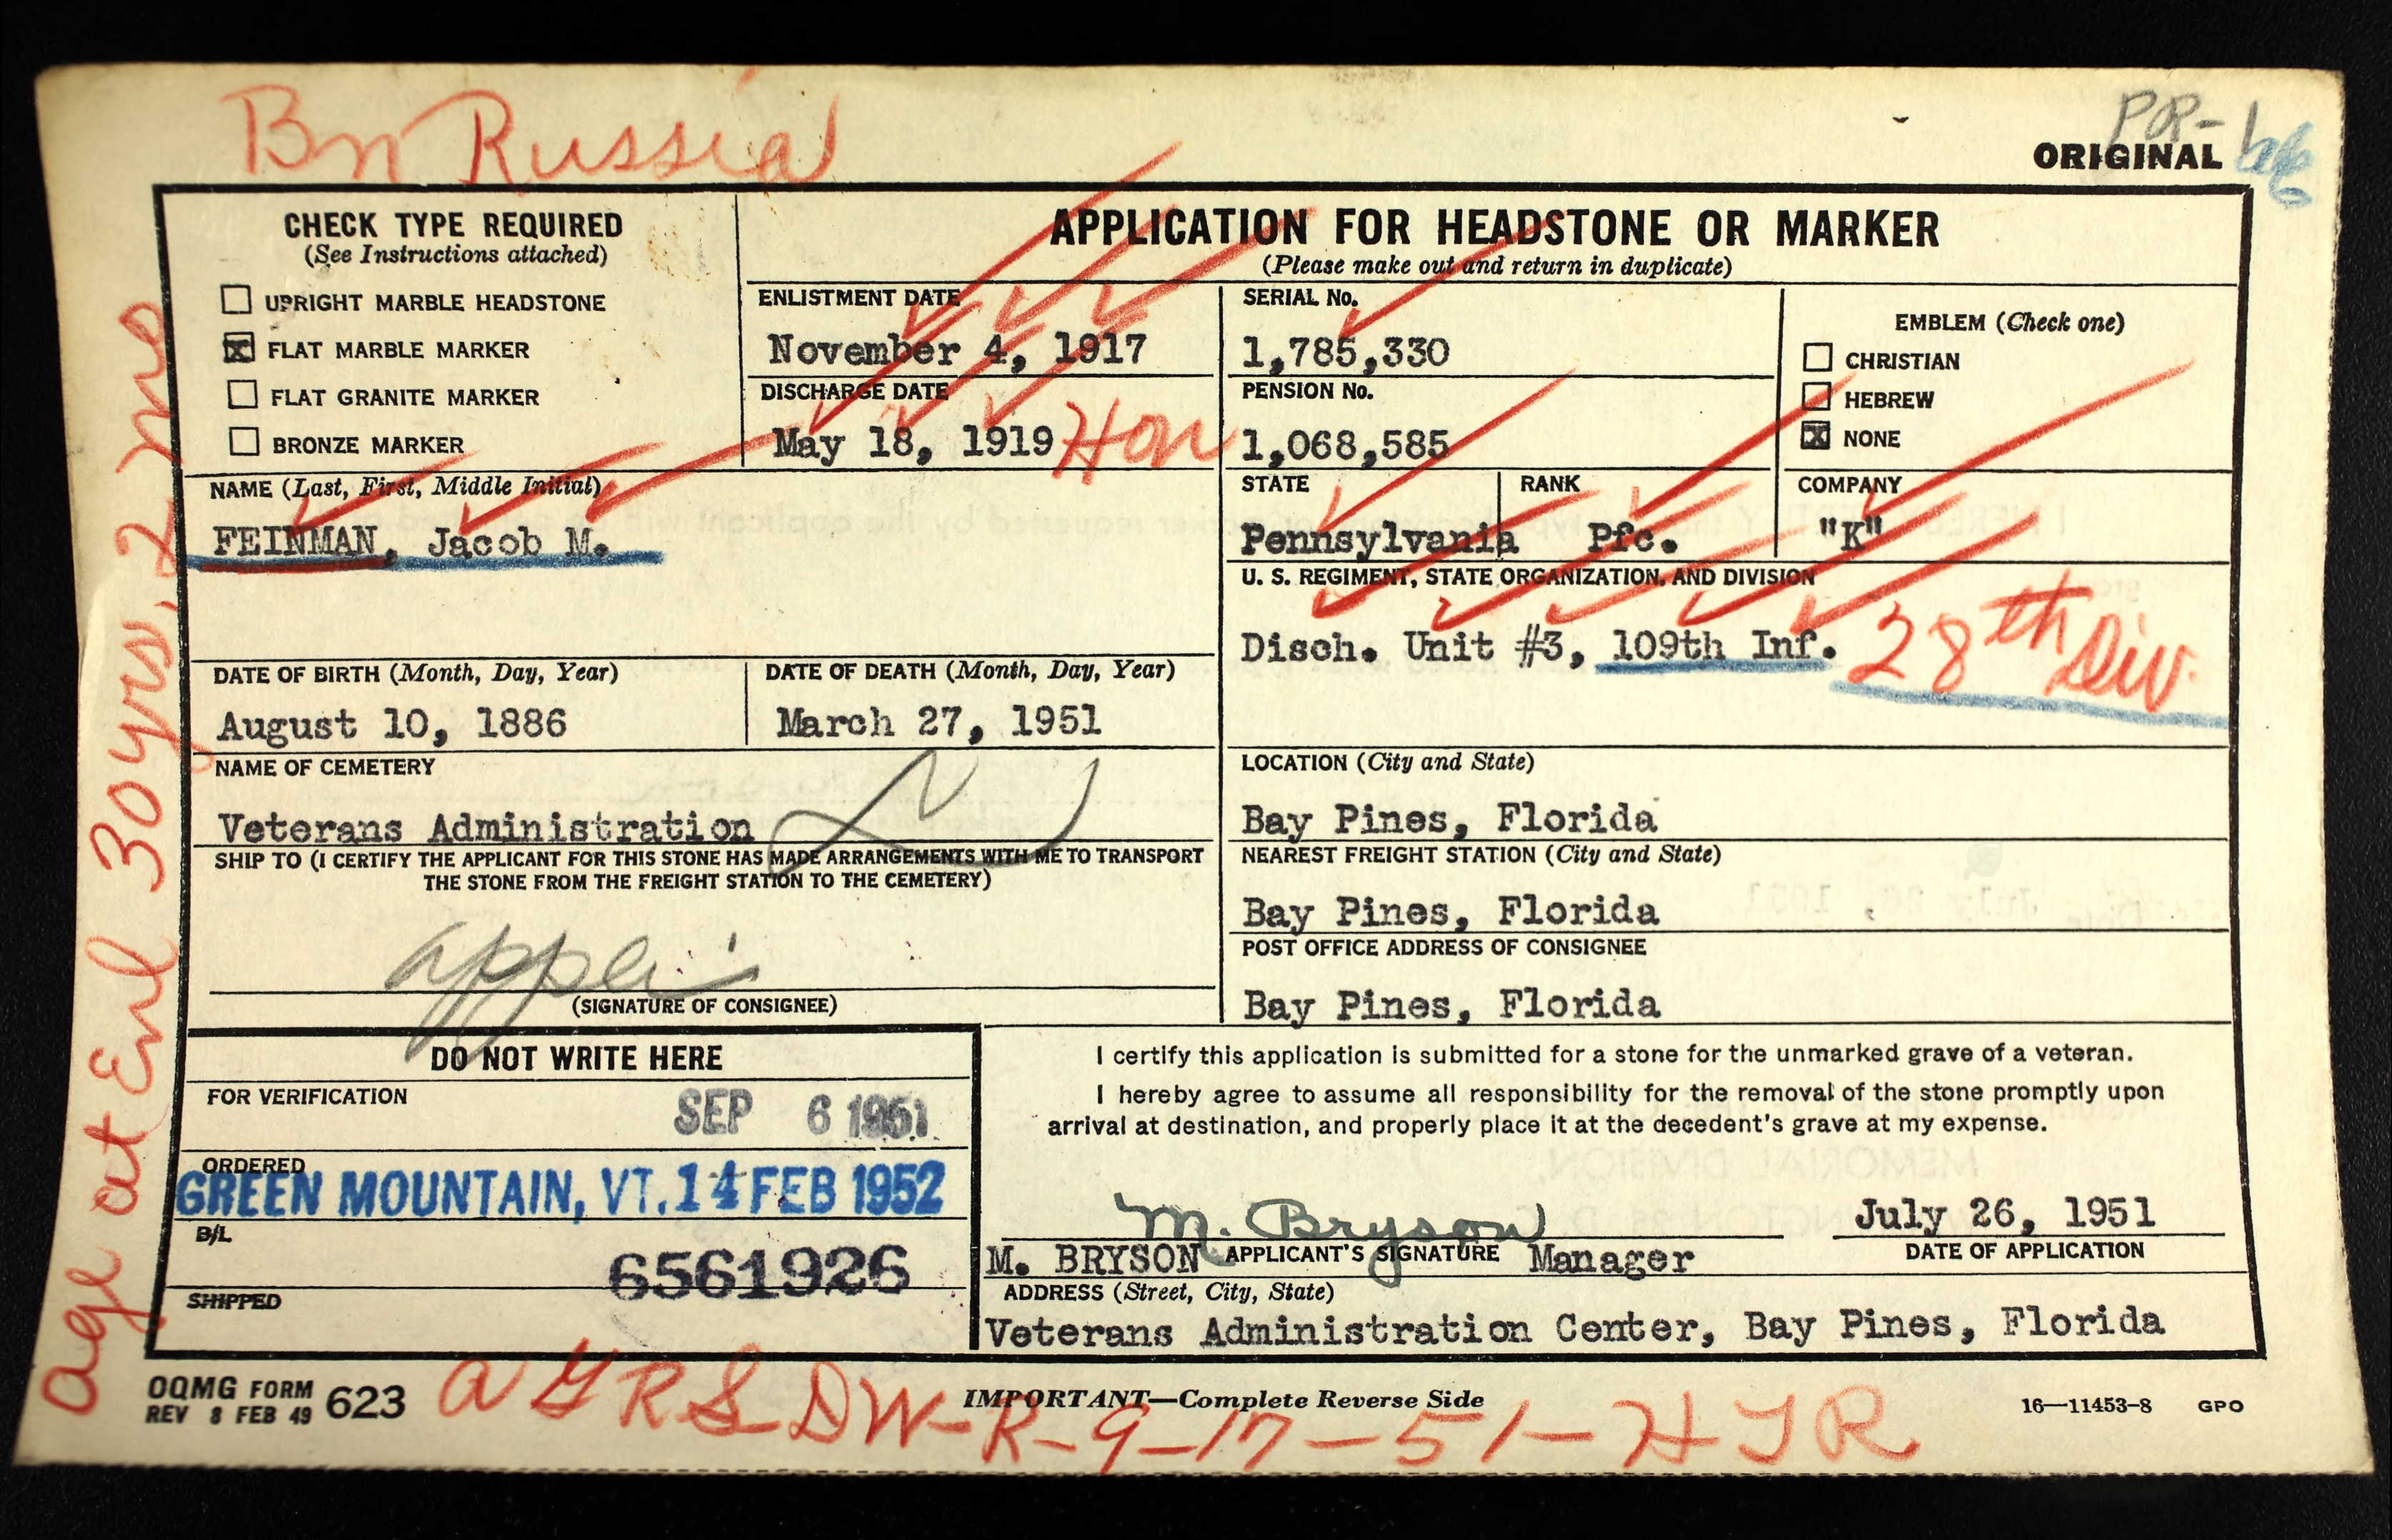 Bn Russia
PR-
ORIGINAL
CHECK TYPE REQUIRED
(See Instructions attached)
UPRIGHT MARBLE HEADSTONE
X FLAT MARBLE MARKER
FLAT GRANITE MARKER
BRONZE MARKER
APPLICATION FOR HEADSTONE OR MARKER
(Please make out and return in duplicate)
ENLISTMENT DATE
November 4, 1917
DISCHARGE DATE
May 18, 1919 Hon
SERIAL No.
1,785,330
PENSION No.
1,068,585
EMBLEM (Check one)
CHRISTIAN
HEBREW
X NONE
NAME (Last, First, Middle Initial)
FEINMAN, Jacob M.
STATE
Pennsylvania
RANK
Pfc.
COMPANY
"K"
U. S. REGIMENT, STATE ORGANIZATION, AND DIVISION
Disch. Unit #3, 109th Inf. 28th Div.
DATE OF BIRTH (Month, Day, Year)
August 10, 1886
DATE OF DEATH (Month, Day, Year)
March 27, 1951
NAME OF CEMETERY
Veterans Administration
LOCATION (City and State)
Bay Pines, Florida
SHIP TO (I CERTIFY THE APPLICANT FOR THIS STONE HAS MADE ARRANGEMENTS WITH ME TO TRANSPORT
THE STONE FROM THE FREIGHT STATION TO THE CEMETERY)
(SIGNATURE OF CONSIGNEE)
NEAREST FREIGHT STATION (City and State)
Bay Pines, Florida
POST OFFICE ADDRESS OF CONSIGNEE
Bay Pines, Florida
DO NOT WRITE HERE
FOR VERIFICATION
SEP 6 1951
ORDERED
GREEN MOUNTAIN, VT. 14 FEB 1952
B/L
6561926
SHIPPED
I certify this application is submitted for a stone for the unmarked grave of a veteran.
I hereby agree to assume all responsibility for the removal of the stone promptly upon
arrival at destination, and properly place it at the decedent's grave at my expense.
M. Bryson
M. BRYSON APPLICANT'S SIGNATURE Manager
July 26, 1951
DATE OF APPLICATION
ADDRESS (Street, City, State)
Veterans Administration Center, Bay Pines, Florida
OQMG FORM 623
REV 8 FEB 49
IMPORTANT—Complete Reverse Side
16—11453-8 GPO
AGRS-DW-R-9-17-51-HJR
age at Enl 30yrs, 2 mo